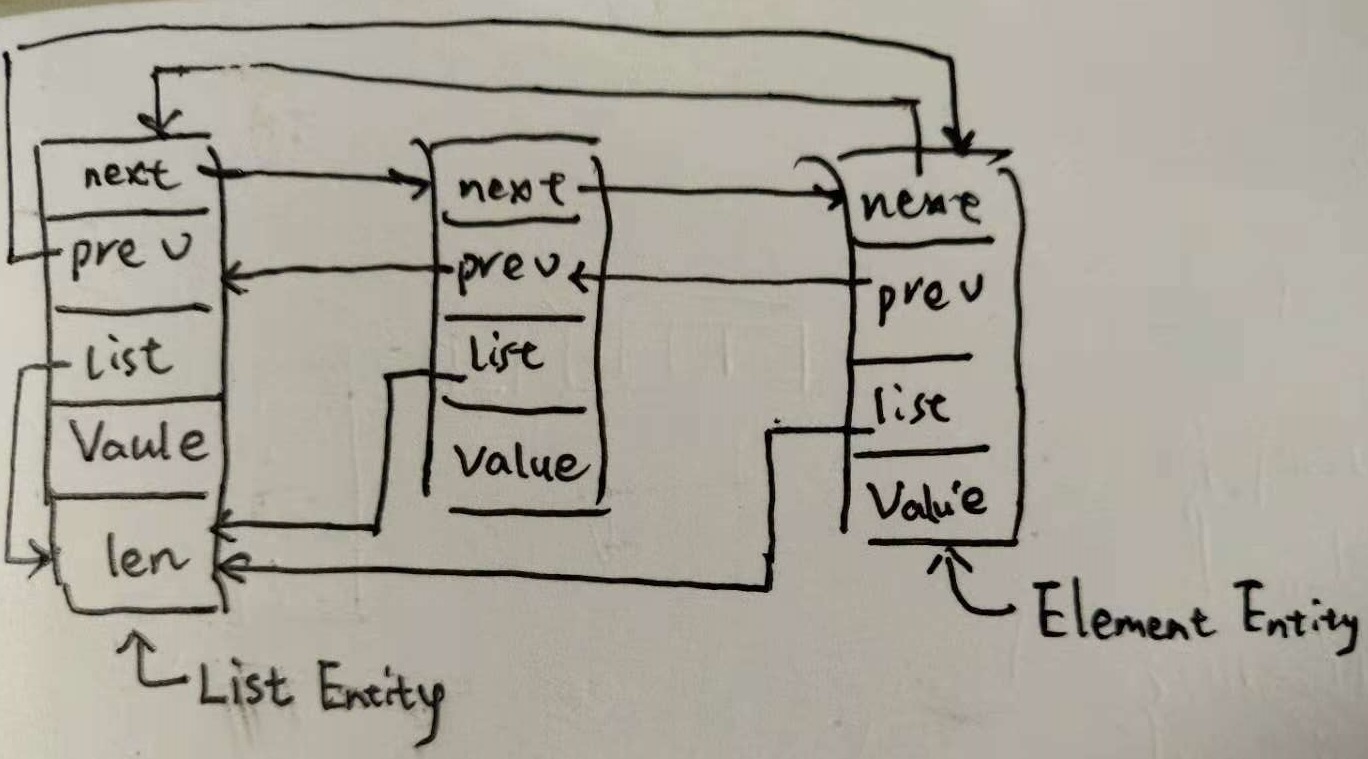 next
prev
list
Vaule
len
List Entity
next
prev
list
value
next
prev
list
Value
Element Entity